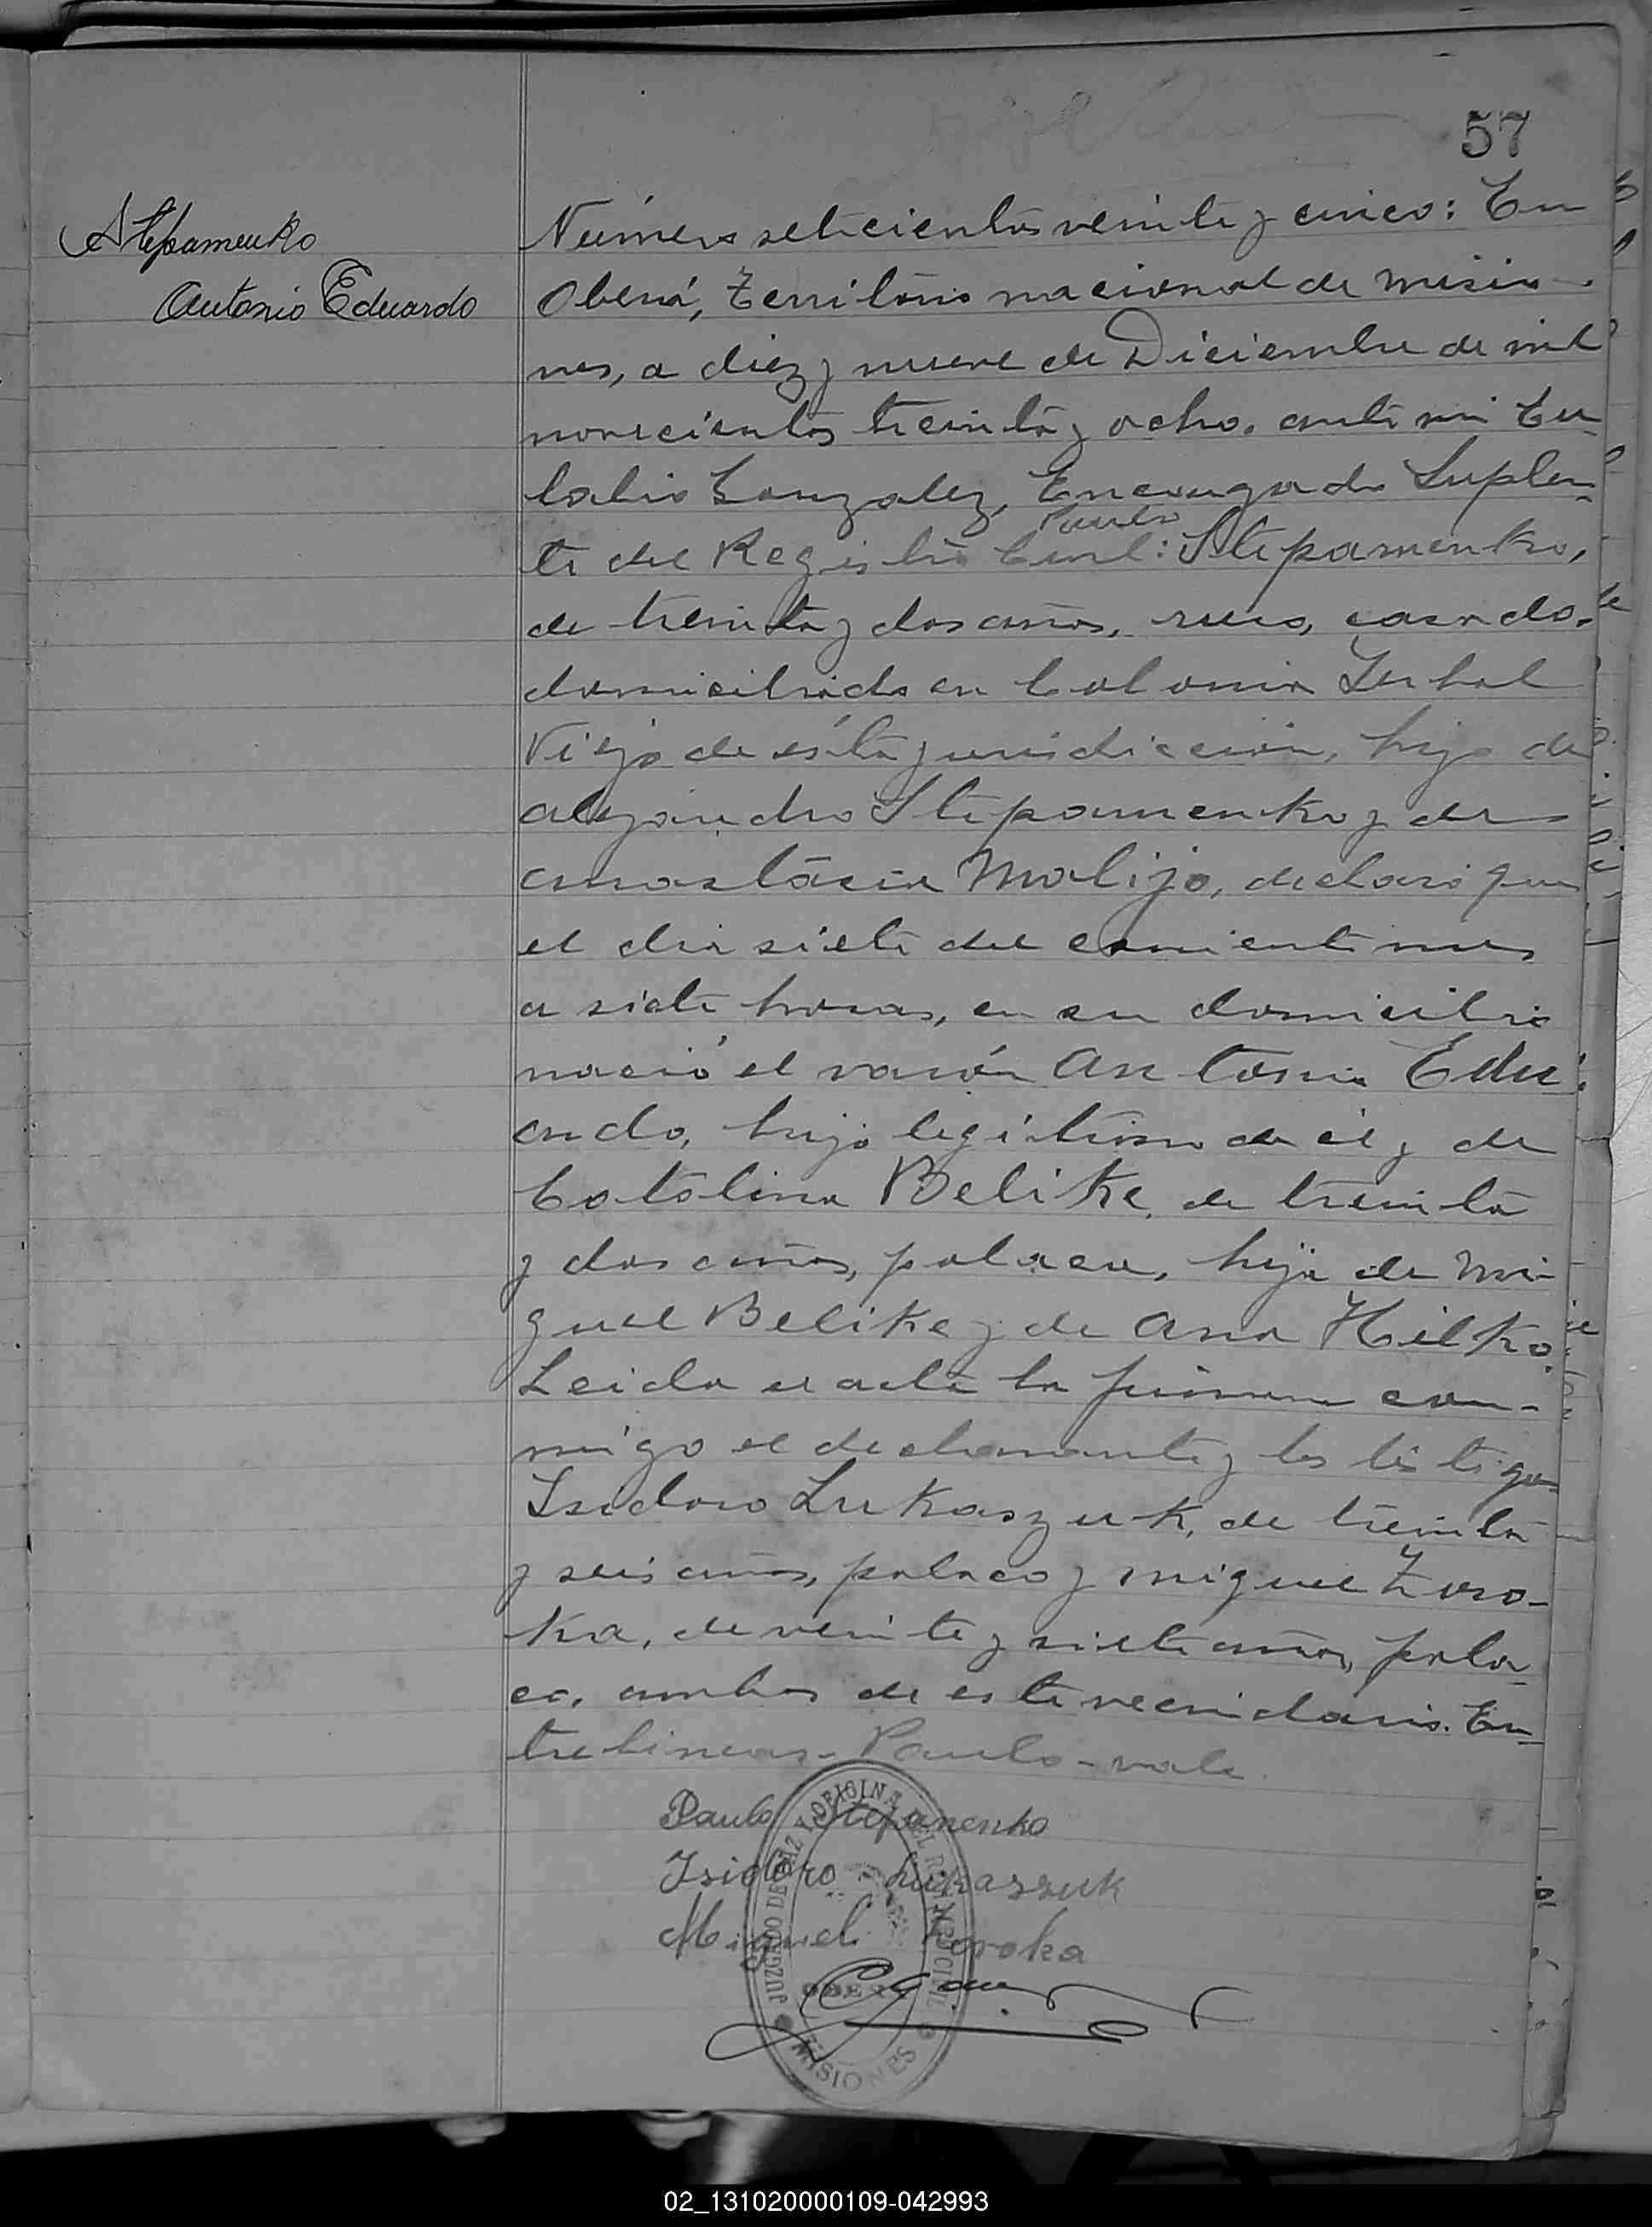 57
Stepamenko
Antonio Eduardo
Número setecientos veinte y cinco: En
Oberá, Territorio nacional de Misio-
nes, a diez y nueve de Diciembre de mil
novecientos treinta y ocho, ante mi Eu-
lalio Gonzalez, Encargado Suplen-
Paulo
te del Registro Civil: Stepamenko,
de treinta y dos años, ruso, casado,
domiciliado en Colonia Yerbal
Viejo de ésta jurisdicción, hijo de
Alejandro Stepamenko y de
Anastàcia Malijo, declaró que
el dia siete del corriente mes
a siete horas, en su domicilio
nació el varón Antonio Edu-
ardo, hijo legítimo de él y de
Catalina Belike, de treinta
y dos años, polaca, hija de Mi-
guel Belike y de Ana Hilko.
Leida el acta la firman con-
migo el declarante y los testigos
Isidoro Lukaszuk, de treinta
y seis años, polaco y Miguel Zoro-
ka, de veinte y siete años, pola-
co, ambos de este vecindario. En-
tre lineas - Paulo - vale.
Paulo Stepanenko
Isidoro Lukaszuk
Miguel Zoroka
JUZGADO DE PAZ Y OFICINA DEL REGISTRO CIVIL
OBERÁ
MISIONES
02_131020000109-042993